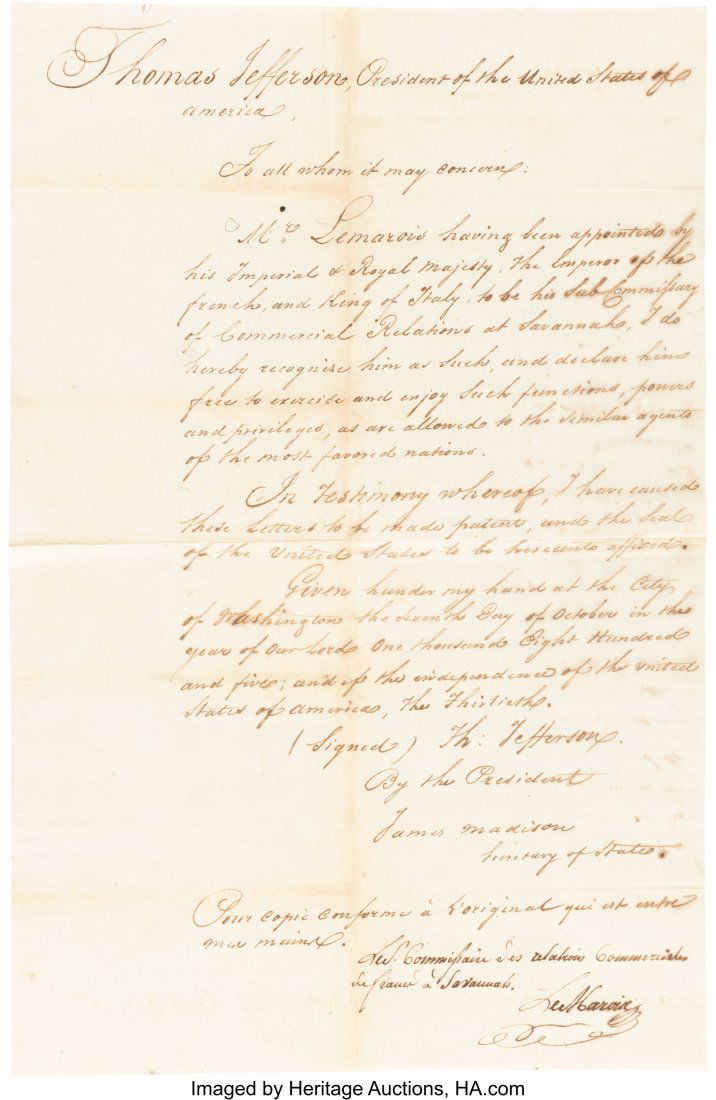 Thomas Jefferson, President of the United States of
america,
To all whom it may concern:
Mr. Lemarois having been appointed by
his Imperial & Royal Majesty, The emperor of the
french, and King of Italy, to be his Sub Commissary
of Commercial Relations at Savannah, I do
hereby recognise him as such, and declare him
free to exercise and enjoy such functions, powers
and privileges, as are allowed to the similar agents
of the most favored nations.
In Testimony whereof, I have caused
these Letters to be made patent, and the Seal
of the United States to be hereunto affixed.
Given hunder my hand at the City
of Washington the seventh Day of October in the
year of our Lord one thousand Eight Hundred
and five; and of the independence of the united
States of america, the Thirtieth.
(Signed) Th: Jefferson.
By the President
James madison
Secretary of State.
Pour copie conforme à l'original qui est entre
mes mains.
Le S. Commissaire des relations Commerciales
de france à Savannah.
LeMarois
Imaged by Heritage Auctions, HA.com